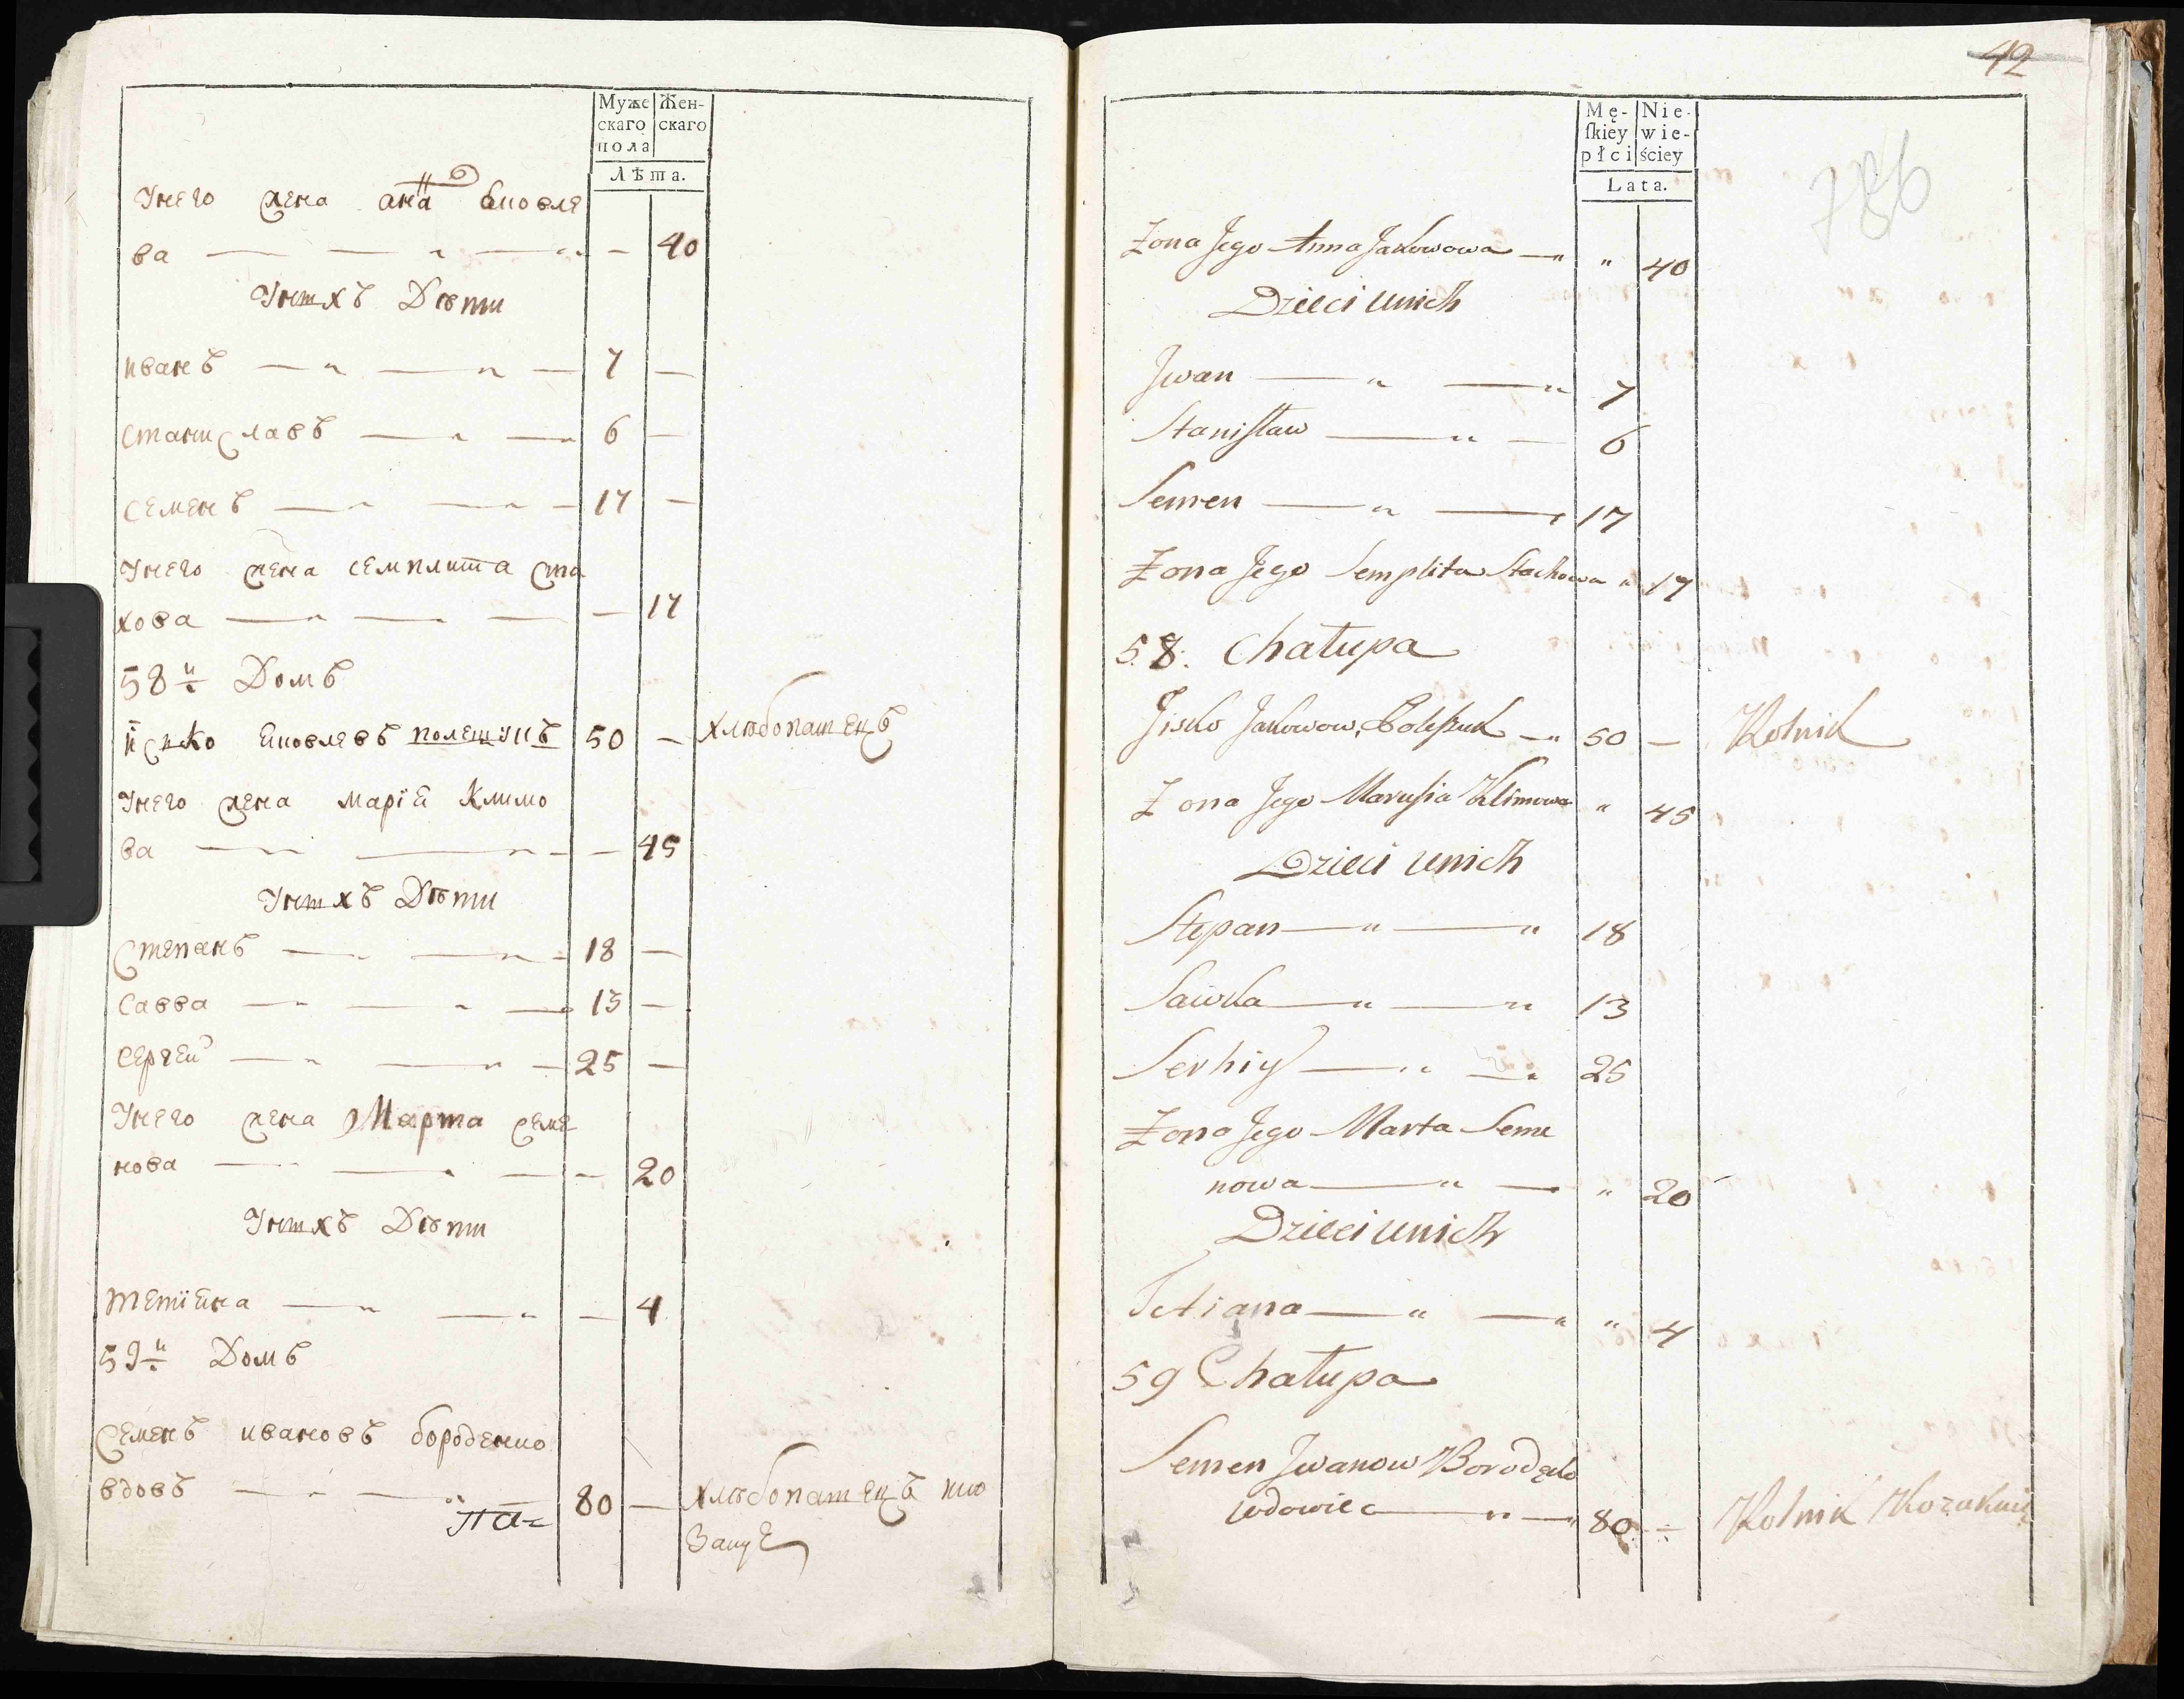 Муже
скаго
пола
Жен-
скаго
Лѣта.
Унего жена анна Яковле
ва — — — — 40
Унихъ Дѣти
иванъ — — — 7 —
станиславъ — — 6 —
семенъ — — — 17 —
Унего жена семплита ста
хова — — — — 17
58й Домъ
Яско Яковлевъ полещукъ 50 — хлѣбопашецъ
Унего жена марія климо
ва — — — 45
Унихъ Дѣти
Степанъ — — — 18 —
савва — — — 13 —
сергей — — — 25 —
Унего жена Марта семе
нова — — — — 20
Унихъ Дѣти
тетіяна — — — 4
59й Домъ
Семенъ ивановъ бороденко
вдовъ — — 80 — хлѣбопашецъ
42
786
Mę-
ſkiey
płci
Nie-
wie-
ściey
Lata.
Żona Jego Anna Jakowowa — „ „ 40
Dzieci unich
Jwan — „ — „ 7
Staniſław — „ — 6
Semen — „ — 17
Żona Jego Semplita Stachowa „ 17
58. Chałupa
Jisko Jakowow Poleſzuk — „ 50 — Rolnik
Żona Jego Maruſia Klimowa „ 45
Dzieci unich
Stępan — „ — „ 18
Sawka — „ — „ 13
Serhiy — „ — „ 25
Żona Jego Marta Seme
nowa — „ — „ 20
Dzieci unich
Tetiana — „ — „ „ 4
59 Chałupa
Semen Jwanow Borodęko
wdowiec — „ — „ 80 — Rolnik